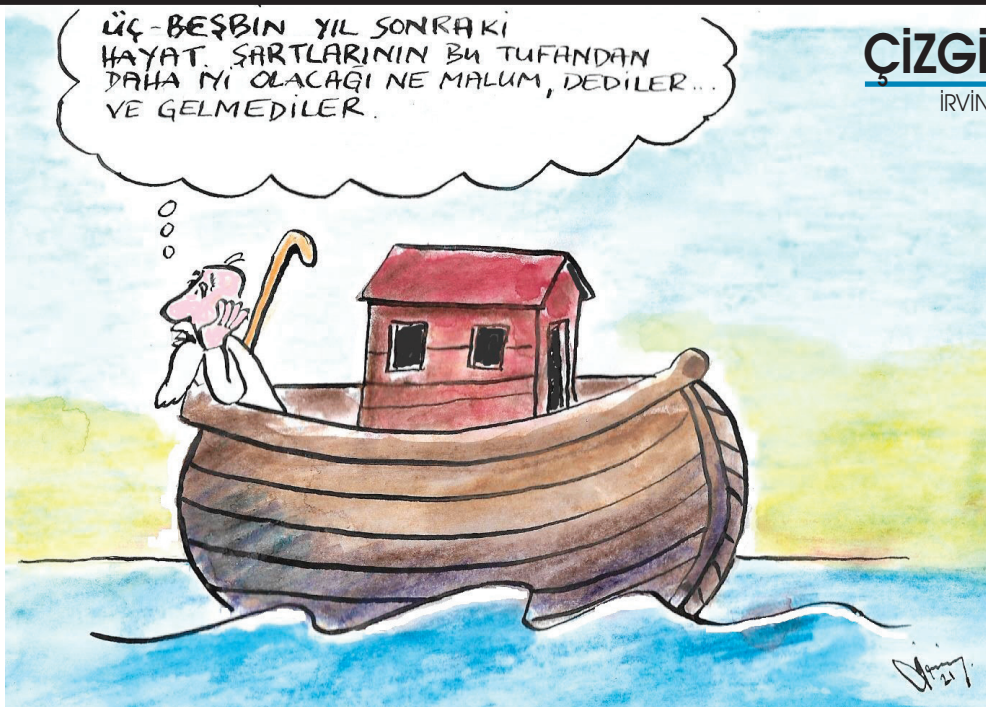 ÜÇ-BEŞBİN YIL SONRAKİ
HAYAT ŞARTLARININ BU TUFANDAN
DAHA İYİ OLACAĞI NE MALUM, DEDİLER...
VE GELMEDİLER.
ÇİZGİ
İRVİN
21